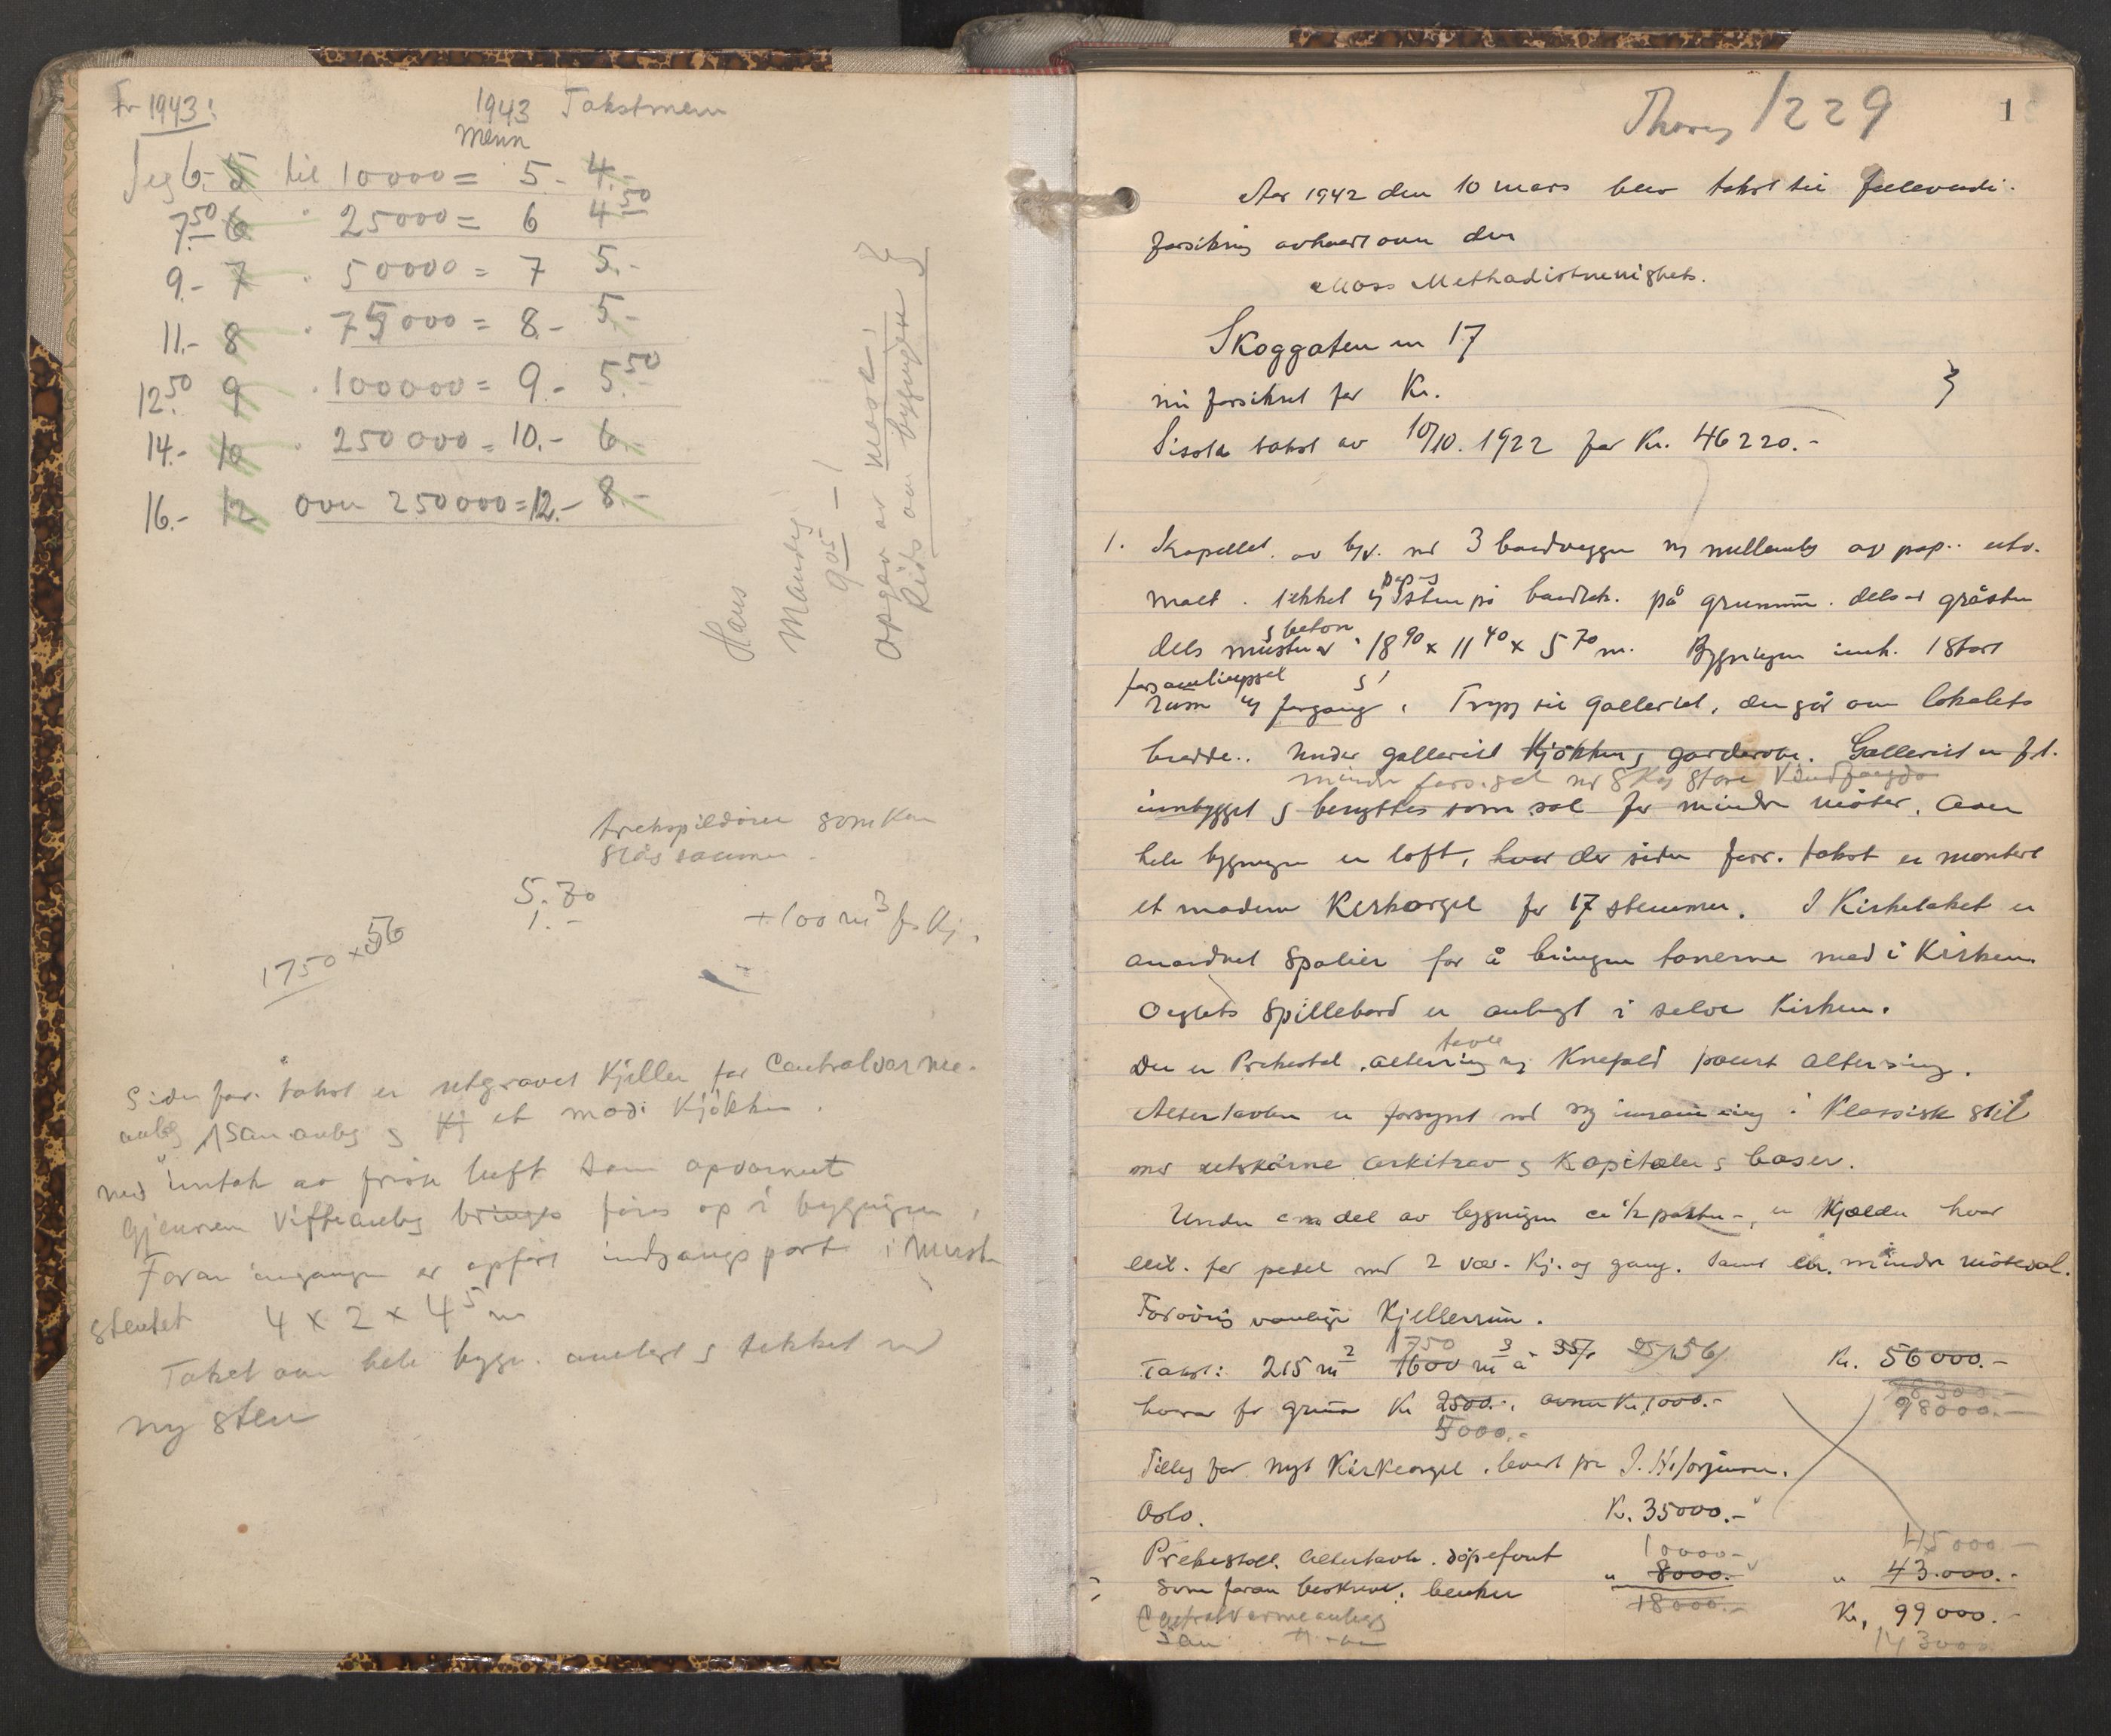 Fr 1943:
1943 Takstmenn
menn
Jeg 6.- 5 til 10000 = 5.- 4.-
7.50 6 " 25000 = 6 4 50
9.- 7 " 50000 = 7 5.-
11.- 8 " 75000 = 8.- 5.-
12.50 9 " 100000 = 9.- 5 50
14.- 10 " 250000 = 10.- 6.-
16.- 12 over 250000 = 12.- 8.-
Hans
Mandag
9 05
opgav av
Rids av bygningen
som kan
slås sammen.
5.70
1.-
+ 100 m3 for Kj.
1750 x 56
Siden for. takst er utgravet Kjeller for Centralvarme-
anlæg San anlæg og Kj et mod: Kjøkken.
med inntak av frisk luft som opvarmet
gjennem Vifteanlæg bringes føres op i bygningen,
Foran inngangen er opført indgangsport i Murst
4 x 2 x 4 5 m
Taket over hele bygn. omlagt og tekket med
ny sten
1229
1
Aar 1942 den 10 mars blev takst til
forsikring avholdt over den
Moss Methodistmenighets.
Skoggaten nr 17
nu forsikret for Kr.
Sisste takst av 10/10. 1922 for Kr. 46220.-
1. Kapellet. av b/v. med 3 bordvegger og mellemlæg av pap.. utv.
malt. tekket og sten på bordtek. på grunnm. dels av gråsten
pap og
dels mursten og beton 18 90 x 11 40 x 5 70 m. Bygningen innh. 1 stort
forsamlingssal
rum og forgang. Trapp til galleriet, den går over lokalets
bredde.. Under galleriet Kjøkken og garderobe. Galleriet er f.t.
mindre fors.sal med store Vindfangsdør
innbygget og benyttes som sal for mindre møter. Over
hele bygningen er loft, hvor der siden forr. takst er montert
et moderne Kirkeorgel for 17 stemmer. I Kirketaket er
anordnet Spalier for å bringe tonerne ned i Kirken
Orglets Spillebord er anbragt i selve Kirken.
Der er Prekestol. altertavle altering og Knefald paa alterring.
Altertavlen er forsynt med ny innramning i Klassisk stil
med utskårne arkitrav og Kapitæler og baser.
Under en del av bygningen ca 1/2 parten -, er Kjælder hvor
leil. for pedel med 2 vær. Kj. og gang. samt en mindre møtesal.
Forøvrig vanlige Kjellerrum.
Takst: 215 m2 1750 1600 m3 à 35/, 56/ Kr. 56000.-
98000.-
herav for grunn Kr 2500.-, Kr. 1000.-
5000.-
Tillæg for nyt Kirkeorgel, levert fra J. H. Jørgensen.
Oslo. K. 35000.-
45000.-
Prekestoll. altertavle. døpefont 10000.- " 8000.- " 43.000.-
Som foran beskrevet. benker 18000.- Kr. 99000.-
Centralvarmeanlegg
San 143000.